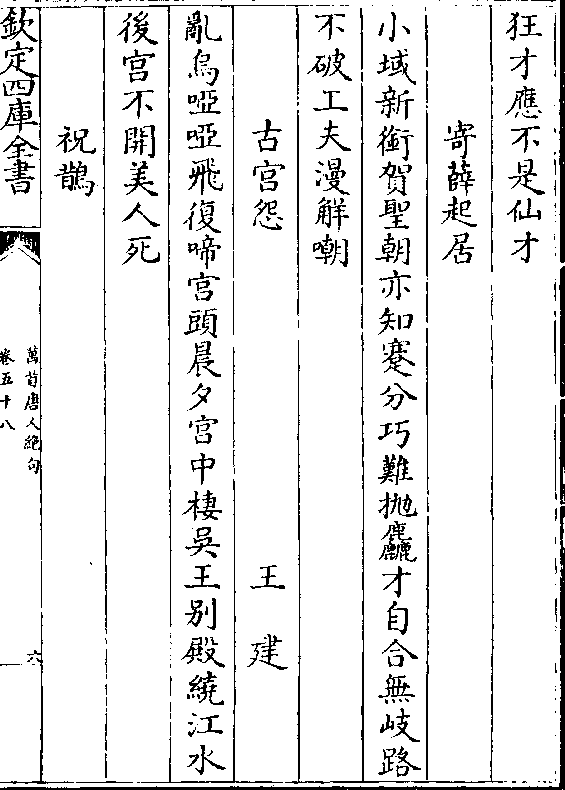 狂才應不是仙才
寄薛起居
小域新銜賀聖朝亦知蹇分巧難抛麤才自合無岐路
不破工夫漫解嘲
古宫怨 王建
亂烏啞啞飛復啼宫頭晨夕宫中棲吳王别殿繞江水
後宫不開美人死
祝鵲
欽定四庫全書
萬首唐人絶句
卷五十八
六